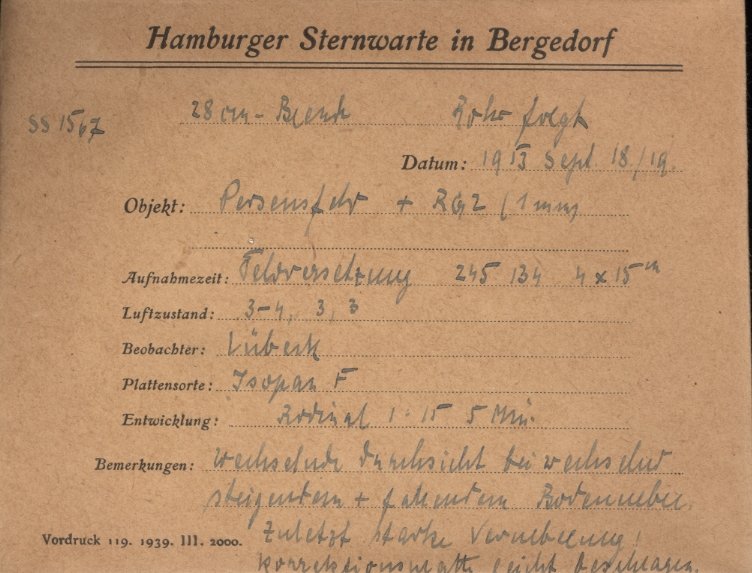 Hamburger Sternwarte in Bergedorf
SS 1567
28 cm - Blende Rohr folgt
Datum: 1953 Sept. 18/19.
Objekt: Perseusfeld + RG2 (1 mm)
Aufnahmezeit: Feldversetzung 245 134 4 x 15 m
Luftzustand: 3-4, 3, 3
Beobachter: Lübeck
Plattensorte: Isopan F
Entwicklung: Rodinal 1:15 5 Min.
Bemerkungen: wechselnde Durchsicht bei wechselnd
steigendem + fallendem Bodennebel.
Zuletzt starke Vernebelung!
Vordruck 119. 1939. III. 2000.
Korrektionsplatte leicht beschlagen.